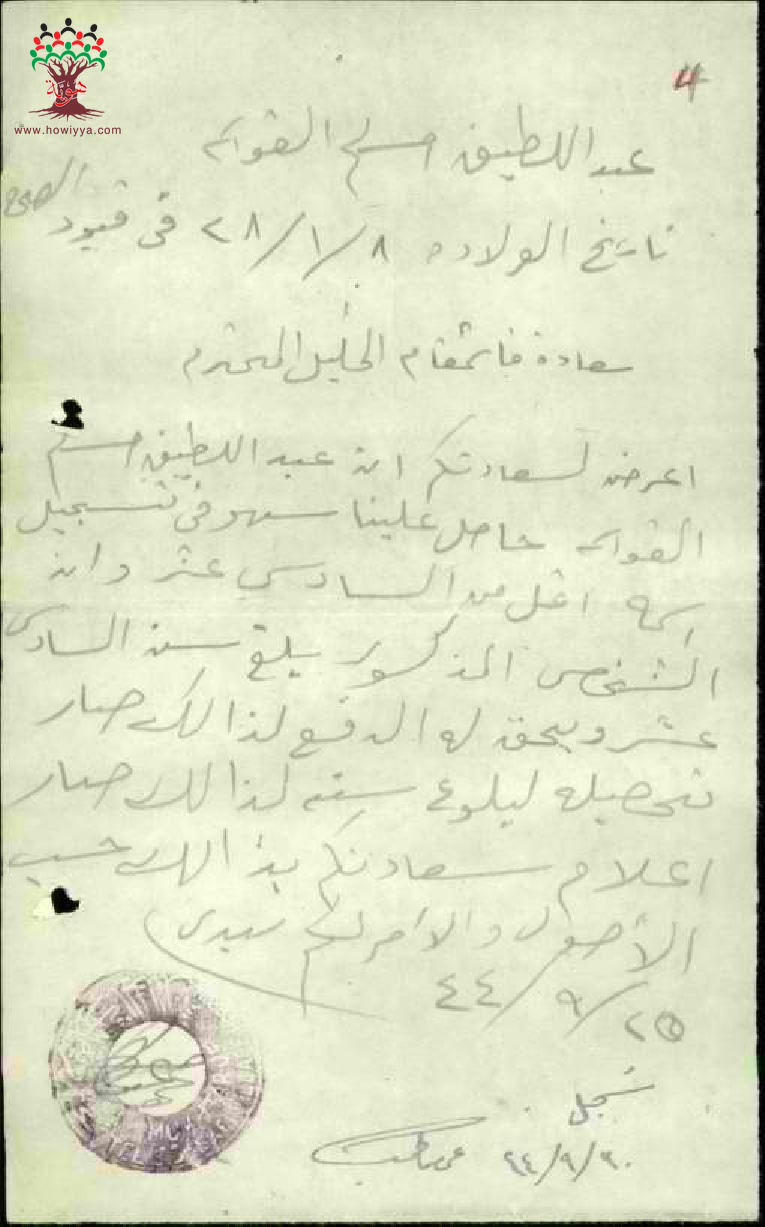 هوية
www.howiyya.com
4
عبد اللطيف مسلم القواسمه
تاريخ الولاده ٢٨/١/٨ في قيود الصحه
سعادة قائمقام الخليل المحترم
اعرض لسعادتكم ان عبد اللطيف مسلم
القواسمه حاصل علينا سهو في تسجيل
اسمه اقل من السادس عشر وان
الشخص المذكور بلغ سن السادس
عشر ويحق له الدفع لذالك صار
تحصيله لبلوغ سنه لذالك صار
اعلام سعادتكم بذالك حسب
الأصول والامر لكم سيدي
٤٤/٩/٢٥
سجل
٤٤/٩/٣٠